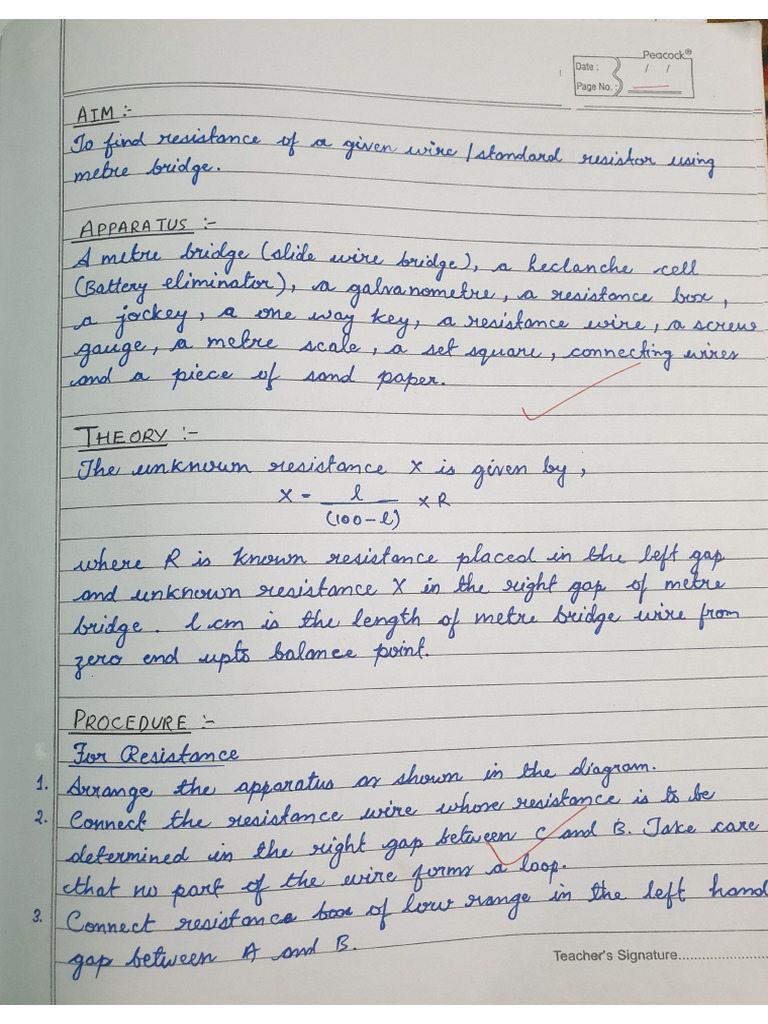 Peacock®
Date : / /
Page No. :
AIM :-
To find resistance of a given wire / standard resistor using
metre bridge.
APPARATUS :-
A metre bridge (slide wire bridge), a heclanche cell
(Battery eliminator), a galvanometre, a resistance box,
a jockey, a one way key, a resistance wire, a screw
gauge, a metre scale, a set square, connecting wires
and a piece of sand paper.
THEORY :-
The unknown resistance X is given by,
X = l / (100-l) × R
where R is known resistance placed in the left gap
and unknown resistance X in the right gap of metre
bridge. l cm is the length of metre bridge wire from
zero end upto balance point.
PROCEDURE :-
For Resistance
1. Arrange the apparatus as shown in the diagram.
2. Connect the resistance wire whose resistance is to be
determined in the right gap between C and B. Take care
that no part of the wire forms a loop.
3. Connect resistance box of low range in the left hand
gap between A and B.
Teacher's Signature.....................